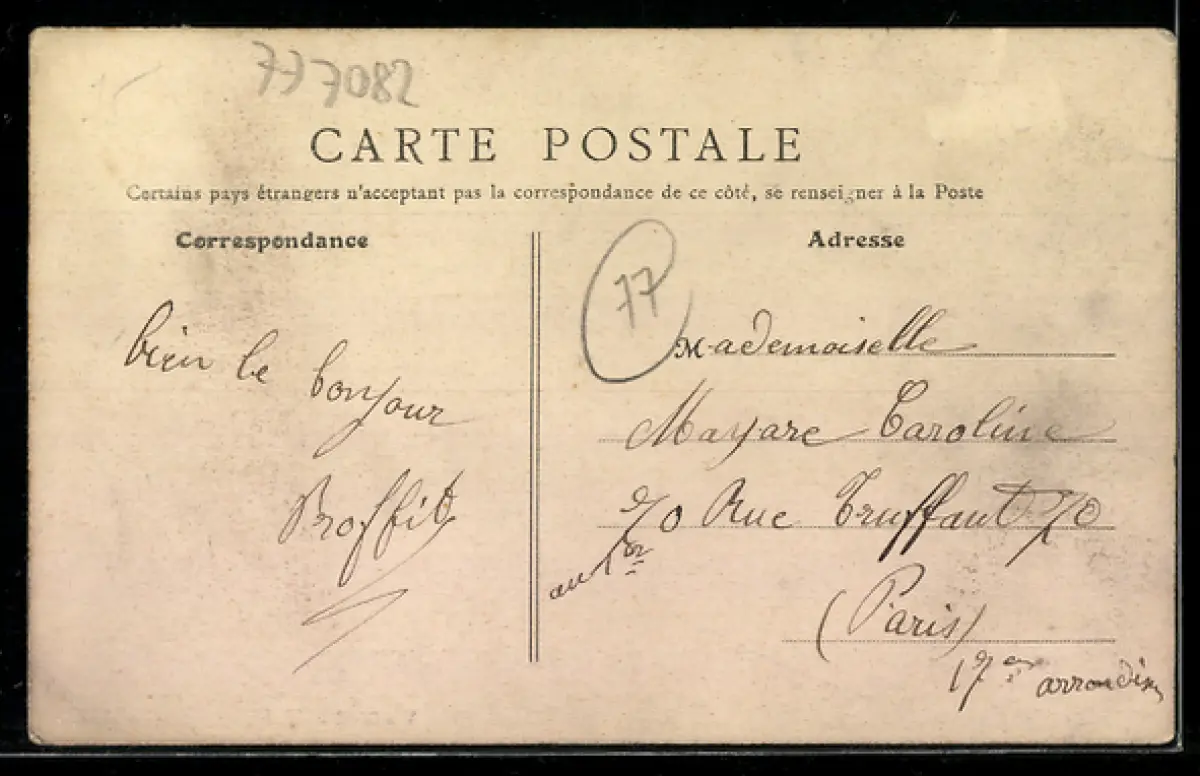 777082
CARTE POSTALE
Certains pays étrangers n'acceptant pas la correspondance de ce côté, se renseigner à la Poste
Correspondance
Adresse
77
bien le bonjour
Proffit
Mademoiselle
Mayare Caroline
70 Rue Truffaut 70
au 1er
(Paris)
17e arrondis